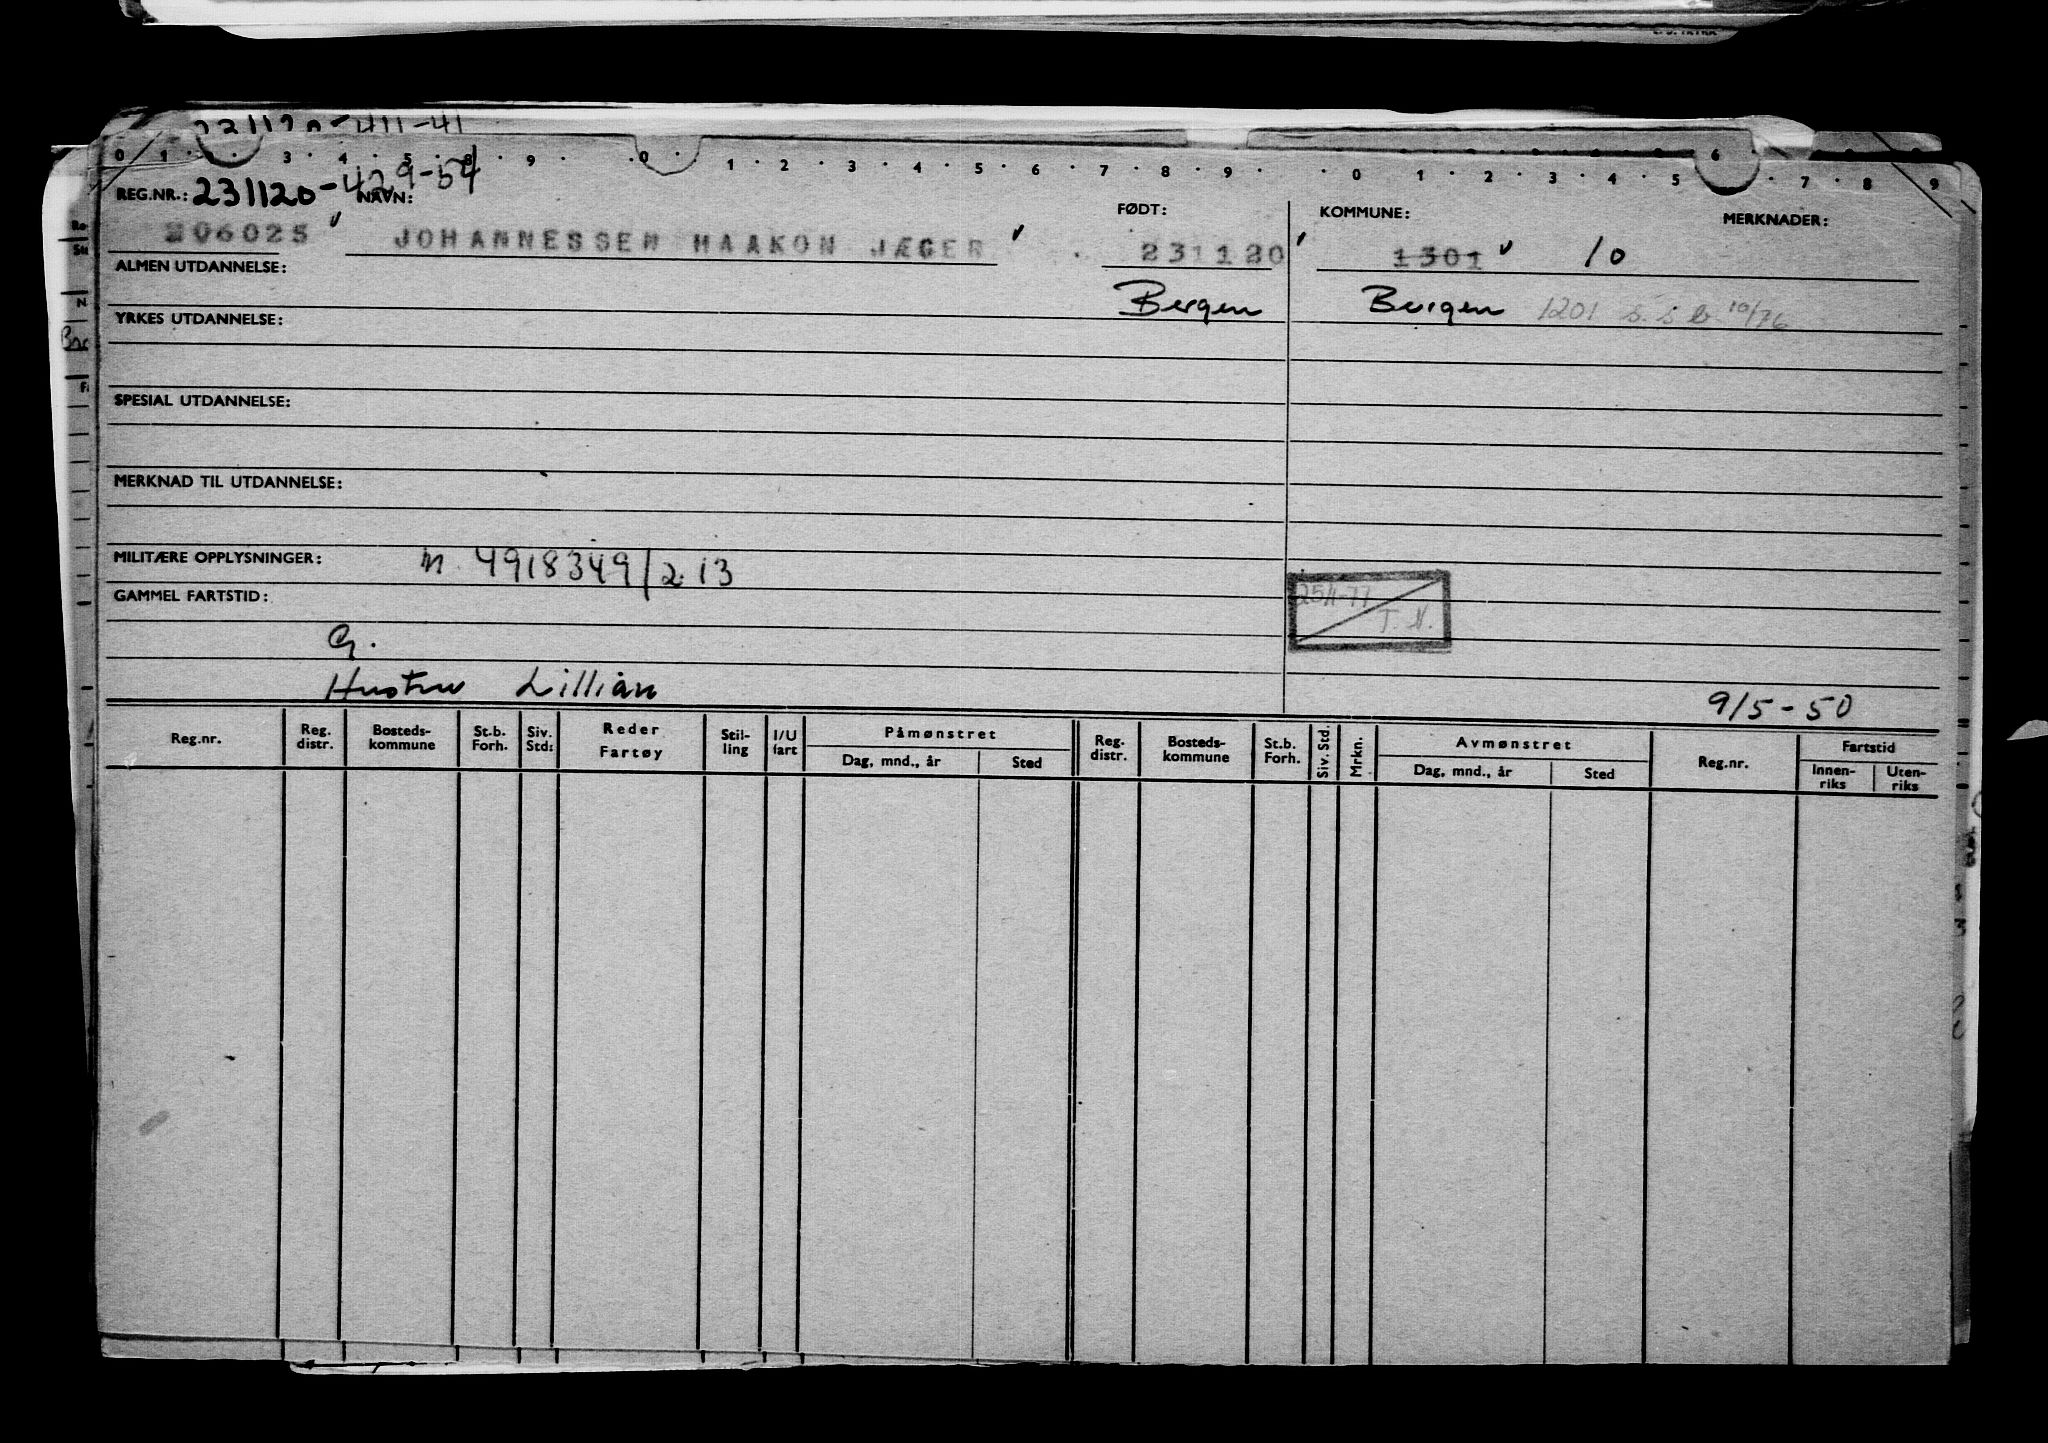 231120-411-41
0 1 · · 3 · 4 · 5 · 8 · 9 · 0 · 1 · 2 · 3 · 4 · 5 · 6 · 7 · 8 · 9 · · 0 · 1 · 2 · 3 · 4 · 5 6 · 7 · 8 · 9
REG.NR.: 231120-429-54 NAVN: FØDT: KOMMUNE: MERKNADER:
206025 JOHANNESSEN HAAKON JÆGER 231120 1301 10
ALMEN UTDANNELSE:
Bergen Bergen 1201 s.s b. 10/76
YRKES UTDANNELSE:
SPESIAL UTDANNELSE:
MERKNAD TIL UTDANNELSE:
MILITÆRE OPPLYSNINGER: M. 4918349/213
GAMMEL FARTSTID: 25/1-77
T. N.
G.
Hustru Lillian 9/5-50
Reg.nr. Reg. distr. Bosteds-kommune St.b. Forh. Siv. Std: Reder Fartøy Stil-ling I/U fart Påmønstret Reg. distr. Bosteds-kommune St.b. Forh. Siv. Std. Mrkn. Avmønstret Reg.nr. Fartstid
Dag, mnd., år Sted Dag, mnd., år Sted Innen-riks Uten-riks